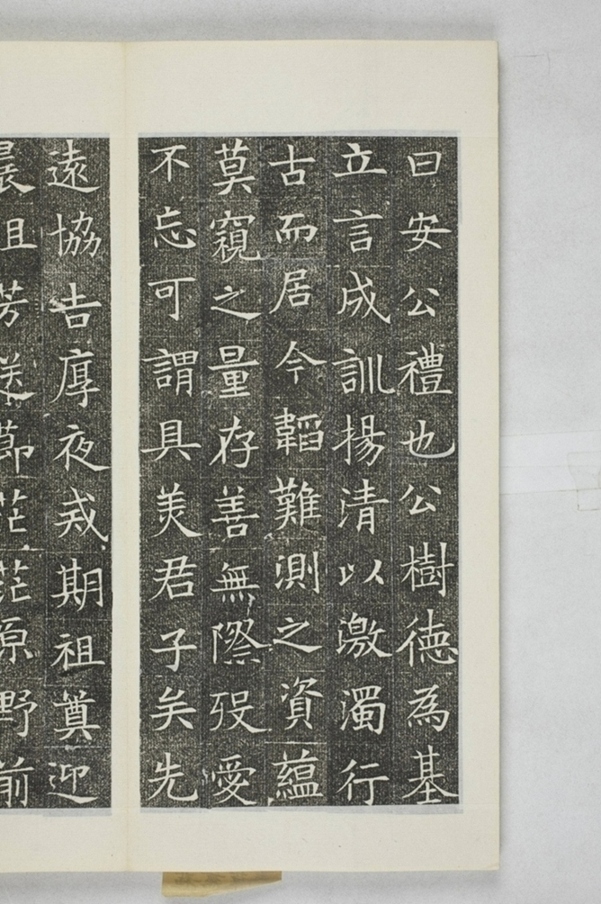 曰安公禮也公樹德為基
立言成訓揚清以激濁行
古而居今韜難測之資蘊
莫窺之量存善無際歿愛
不忘可謂具美君子矣先
遠協吉厚夜戒期祖奠迎
晨且芳送節茫茫原野前